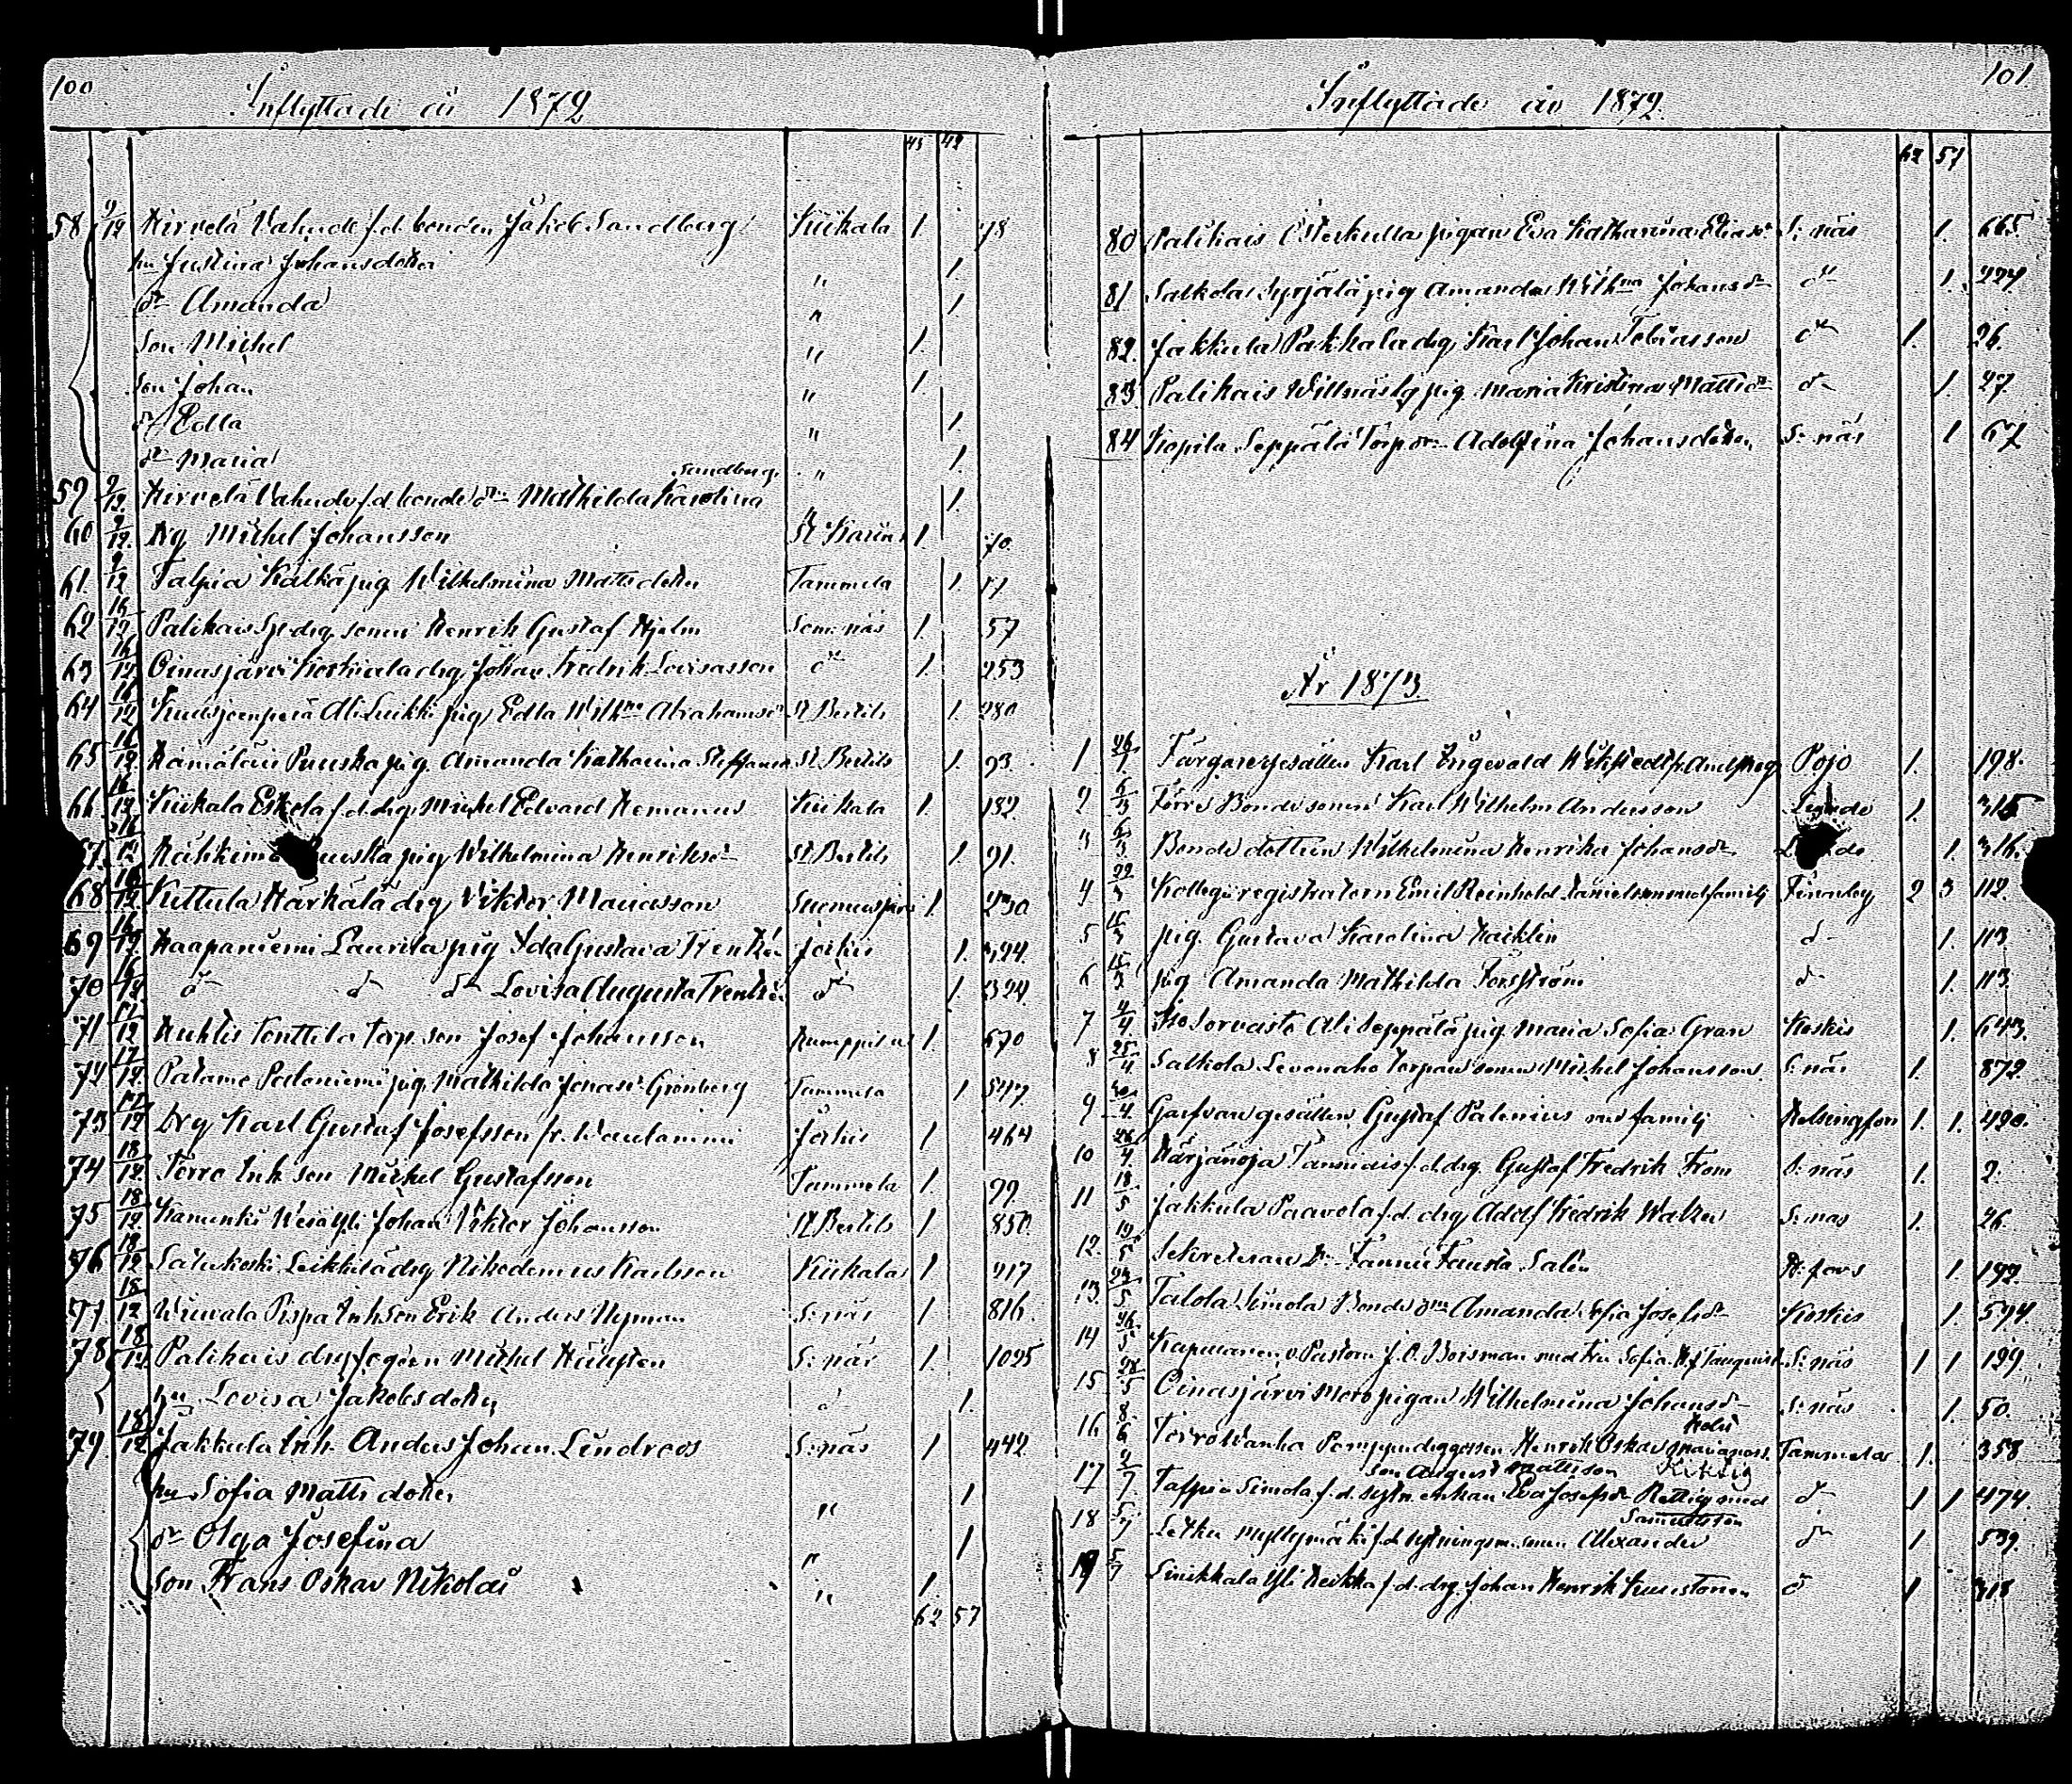 100
Inflyttade år 1872
43 42
58 9/12 Hirvelä Vahude f.d. bonden Jakob Sandberg Kiikala 1. 78
hu Justina Johansdotter " 1.
dr Amanda " 1
Son Mikel " 1.
Son Johan " 1.
dr Edla " 1.
dr Maria " 1.
Sandberg
59 9/12 Hirvelä Vahude f.d. bonde dr Mathilda Karolina " 1.
60 9/12 Dg Mikel Johansson St Karins 1. 70.
61. 9/12 Talpia Kälkä pig Wilhelmina Mattsdotter Tammela 1. 17
62 16/12 Palikais drg. sonen Henrik Gustaf Hjelm Som:näs 1. 57
63 16/12 Oinasjärvi drg Johan Fredrik Lovisasson do 1. 253
64 16/12 Kuusjoenperä Ali Luikki pig Edla Wilhna Abrahamsd St Bertils 1. 280
65 16/12 Hämäläis Puuska pig. Amanda Katharina Steffansd St Bertils 1. 93.
66. 16/12 Kiikala Eskola f.d. drg. Mikel Edvard Hemanus Kiikala 1. 132.
67. 16/12 pig Wilhelmina Henriksdr St Bertils 1. 91.
68 16/12 Kittula Härkälä drg Viktor Mariasson Suomusjärvi 1. 230
69 16/12 Haapaniemi Laurila pig Ida Gustava Trentzén Jockis 1. 324.
70 16/12 do do do Lovisa Augusta Trentzén do 1. 324.
71 17/12 Huhtis Tonttila Torp. son Josef Johansson Humppila 1. 670
72 17/12 Patamo Pateniemi pig. Mathilda Jonasd. Grönberg Tammela 1 547.
73 17/12 Drg Karl Gustaf Josefsson fr. Jockis 1 464
74 18/12 Torro Inh son Mikel Gustafsson Tammela 1. 99.
75 18/12 Yli Johan Viktor Johansson St Bertils 1 850.
76 18/12 Salukoski Leikkilä drg Nikodemus Karlsson Kiikala 1 217
77 18/12 Viuvala Pispa Inh son Erik Anders Nyman S:näs 1 816.
78 18/12 Palikais drg fogden Mikel S:näs 1. 1025
hu Lovisa Jakobsdotter d 1.
79. 18/12 Jakkula Inh. Anders Johan Lindroos S:näs 1 442
hu Sofia Mattsdotter " 1
dr Olga Josefina " 1
Son Frans Oskar Nikolai " 1.
62 57
101.
Inflyttade år 1872.
62 57
80 Palikais Österkulla pigan Eva Katharina Eliasdr S: näs 1. 665.
81 Salkola Syrjälä pig Amanda Wilhna Johansdr do 1. 227
82. Jakkula Pakkala drg Karl Johan Tobiasson do 1. 26.
83 Palikais Willnäs pig Maria Kristina Mattsdr do 1. 27.
84 Kopila Seppälä Torp dr Adolfina Johansdotter S: näs 1 67
År 1873.
1 26/1 Färgaregesällen Karl Engevald Pojo 1. 198.
2 6/3 Torro Bonde sonen Karl Wilhelm Andersson 1. 315
3 6/3 Bonde dottren Wilhelmina Henrika Johansdr 1. 316.
4 22/3 Kollegiiregistratorn Emil Reinhold Danielson med familj Finnby 2 3 112.
5 15/3 pig. Gustava Karolina do 1. 113
6 15/3 pig Amanda Mathilda Forsström do 1. 113.
7 4/4. Ali Seppälä pig. Maria Sofia Gran Koskis 1. 643.
8 25/4 Salkola Levonaho Torpare sonen Mikel Johansson S: näs 1. 872.
9 30/4 Garfvare gesällen Gustaf Palenius med familj Helsingfors 1. 1. 490.
10 26/4. Härjänoja f.d. drg. Gustaf Fredrik From S: näs 1. 2.
11 18/5 Jakkula Paavola f.d. drg Adolf Fredrik S: näs 1. 26.
12. 19/5 Sekreteraren dr Fanni Fausta Salin H:fors 1. 192.
13. 23/5 Talola Simola Bonde dr Amanda Sofia Josefsdr Koskis 1. 594.
14 26/5 v. Pastorn J.O. med fru Sofia S: näs 1 1 199.
15 28/5 Oinasjärvi Moro pigan Wilhelmina Johansdr S: näs 1. 50.
16 8/6 Torro Wanha Pomppu drg Henrik Oskar Mariasson Tammela 1. 358
son August Mattsson
17 2/7. Talpia Simola f.d. enkan Eva Josefsdr Rettig med do 1 1 474.
Samuelsson
18 5/7 Letku Myllymäki f.d. sonen Alexander do 1 539.
19 5/7 Sinikkala Yli Heikka f.d. drg. Johan Henrik do 1 313